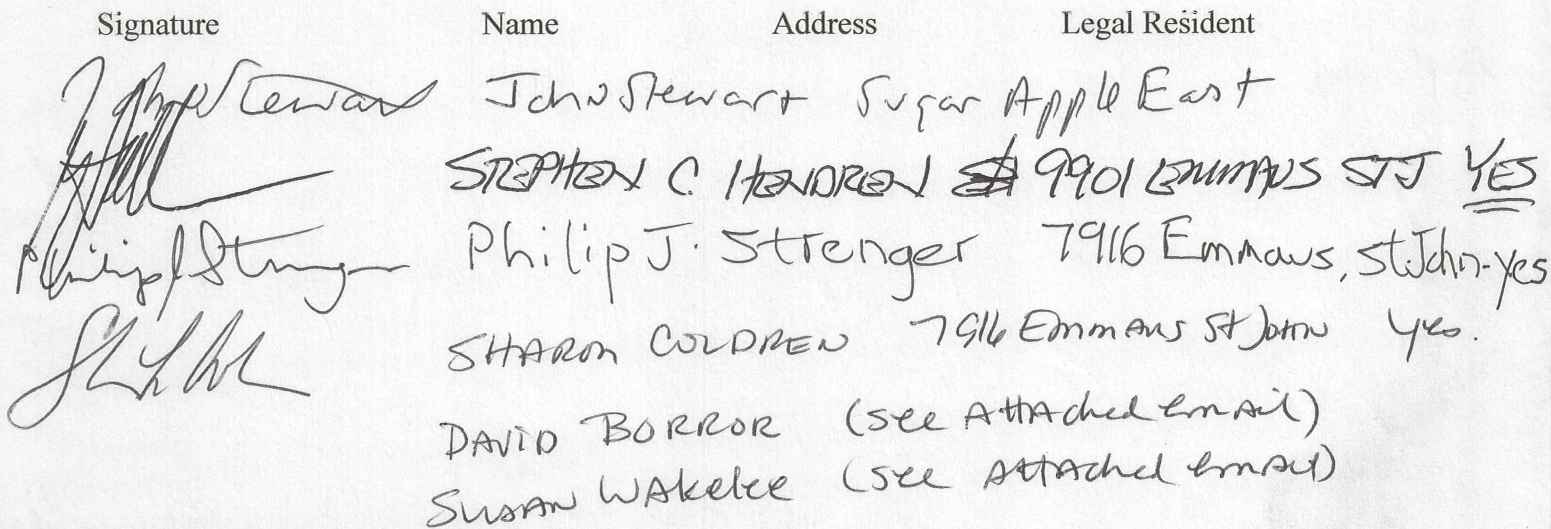 Signature Name Address Legal Resident
John Stewart John Stewart Sugar Apple East
STEPHEN C. HENDREN 9901 EMMAUS STJ YES
Philip J Strenger Philip J. Strenger 7916 Emmaus, St. John - yes
SHARON COLDREN 7916 Emmaus St John yes.
DAVID BORROR (see Attached email)
SUSAN WAkelee (see Attached email)